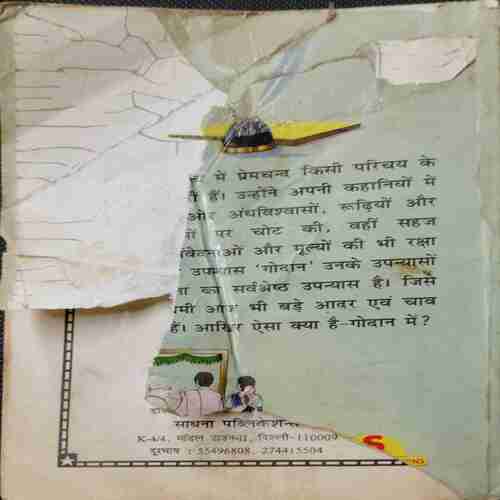 में प्रेमचन्द किसी परिचय के
हैं। उन्होंने अपनी कहानियों में
और अंधविश्वासों, रूढ़ियों और
पर चोट की, वहीं सहज
और मूल्यों की भी रक्षा
उपन्यास 'गोदान' उनके उपन्यासों
का सर्वश्रेष्ठ उपन्यास है। जिसे
आज भी बड़े आदर एवं चाव
है। आखिर ऐसा क्या है-गोदान में?
साधना पब्लिकेशन्स
K-4/4, मॉडल टाउन, दिल्ली-110009
दूरभाष : 55496808, 274415504
S